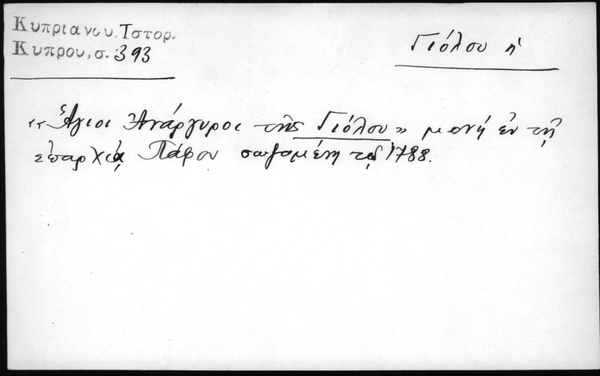 Κυπριανου, Ιστορ.
Κυπρου, σ. 393
Γιόλου ἡ
"Ἅγιοι Ἀνάργυροι τῆς Γιόλου" μονή ἐν τῇ
ἐπαρχίᾳ Πάφου σωζομένη τῷ 1788.